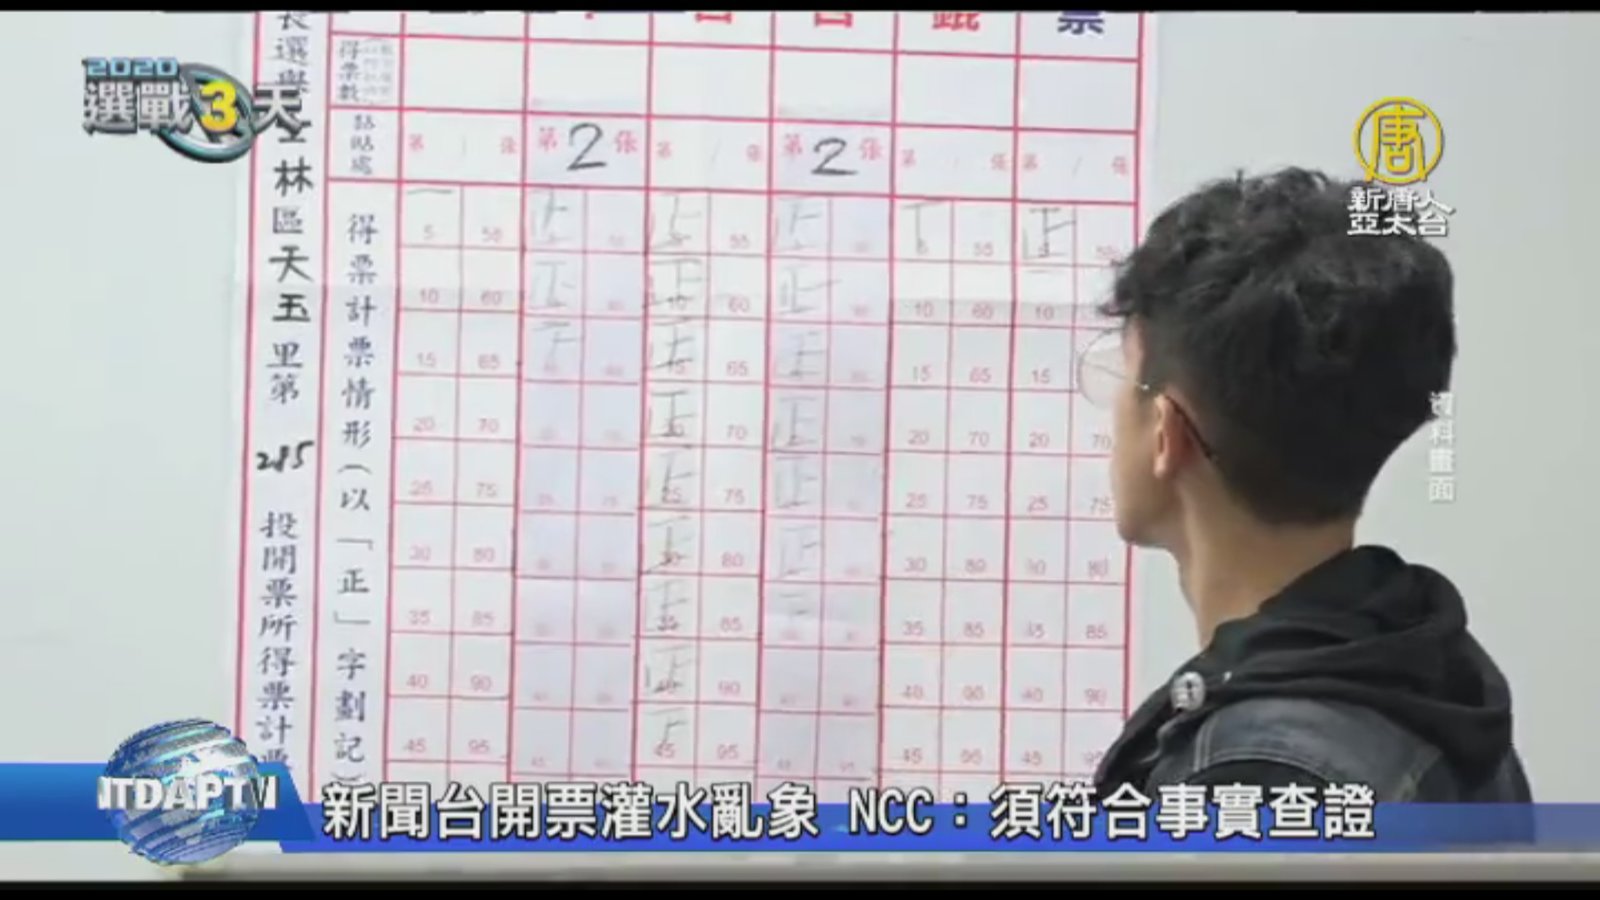 2020
選戰3天
唐
新唐人
亞太台
資料畫面
得票數
黏貼處
第 1 張
第 2 張
第 1 張
第 2 張
第 1 張
第 1 張
長選舉 士林區天玉里第 285 投開票所得票計票
得票計票情形(以「正」字劃記)
5 55 5 55 55 5
10 60 10 60 10 60 10
15 65 15 65 15 65 15
20 70 20 70 20 70 20 70
25 75 25 75 25 75 25 75
30 80 30 80 30 80 30 80
35 85 35 85 35 85 35 85
40 90 40 90 40 90 40 90
45 95 45 95 45 95 45 95
NTDAPTV
新聞台開票灌水亂象 NCC：須符合事實查證